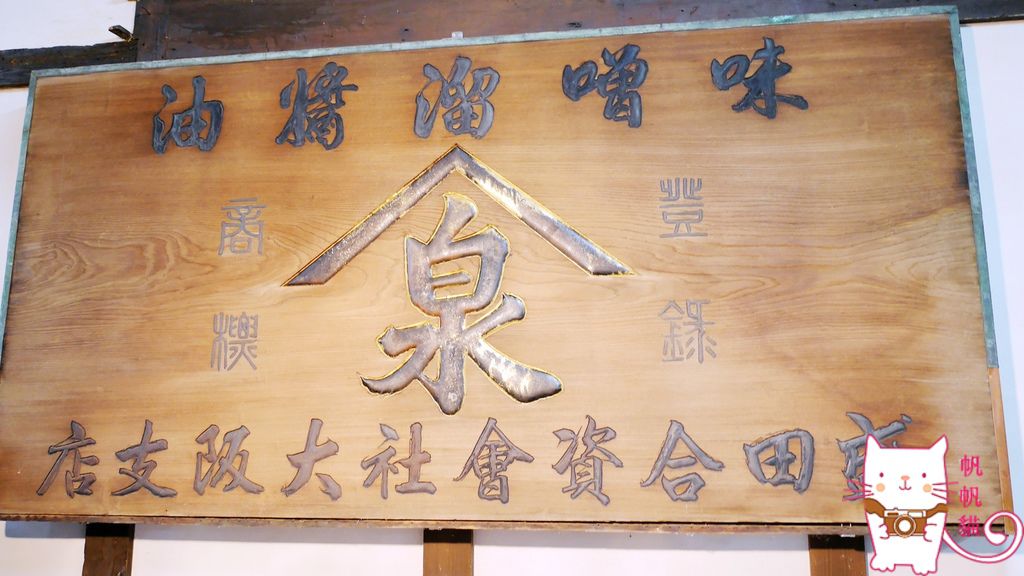 味噌溜醬油
登錄
商標
泉
田合資會社大阪支店
帆帆貓